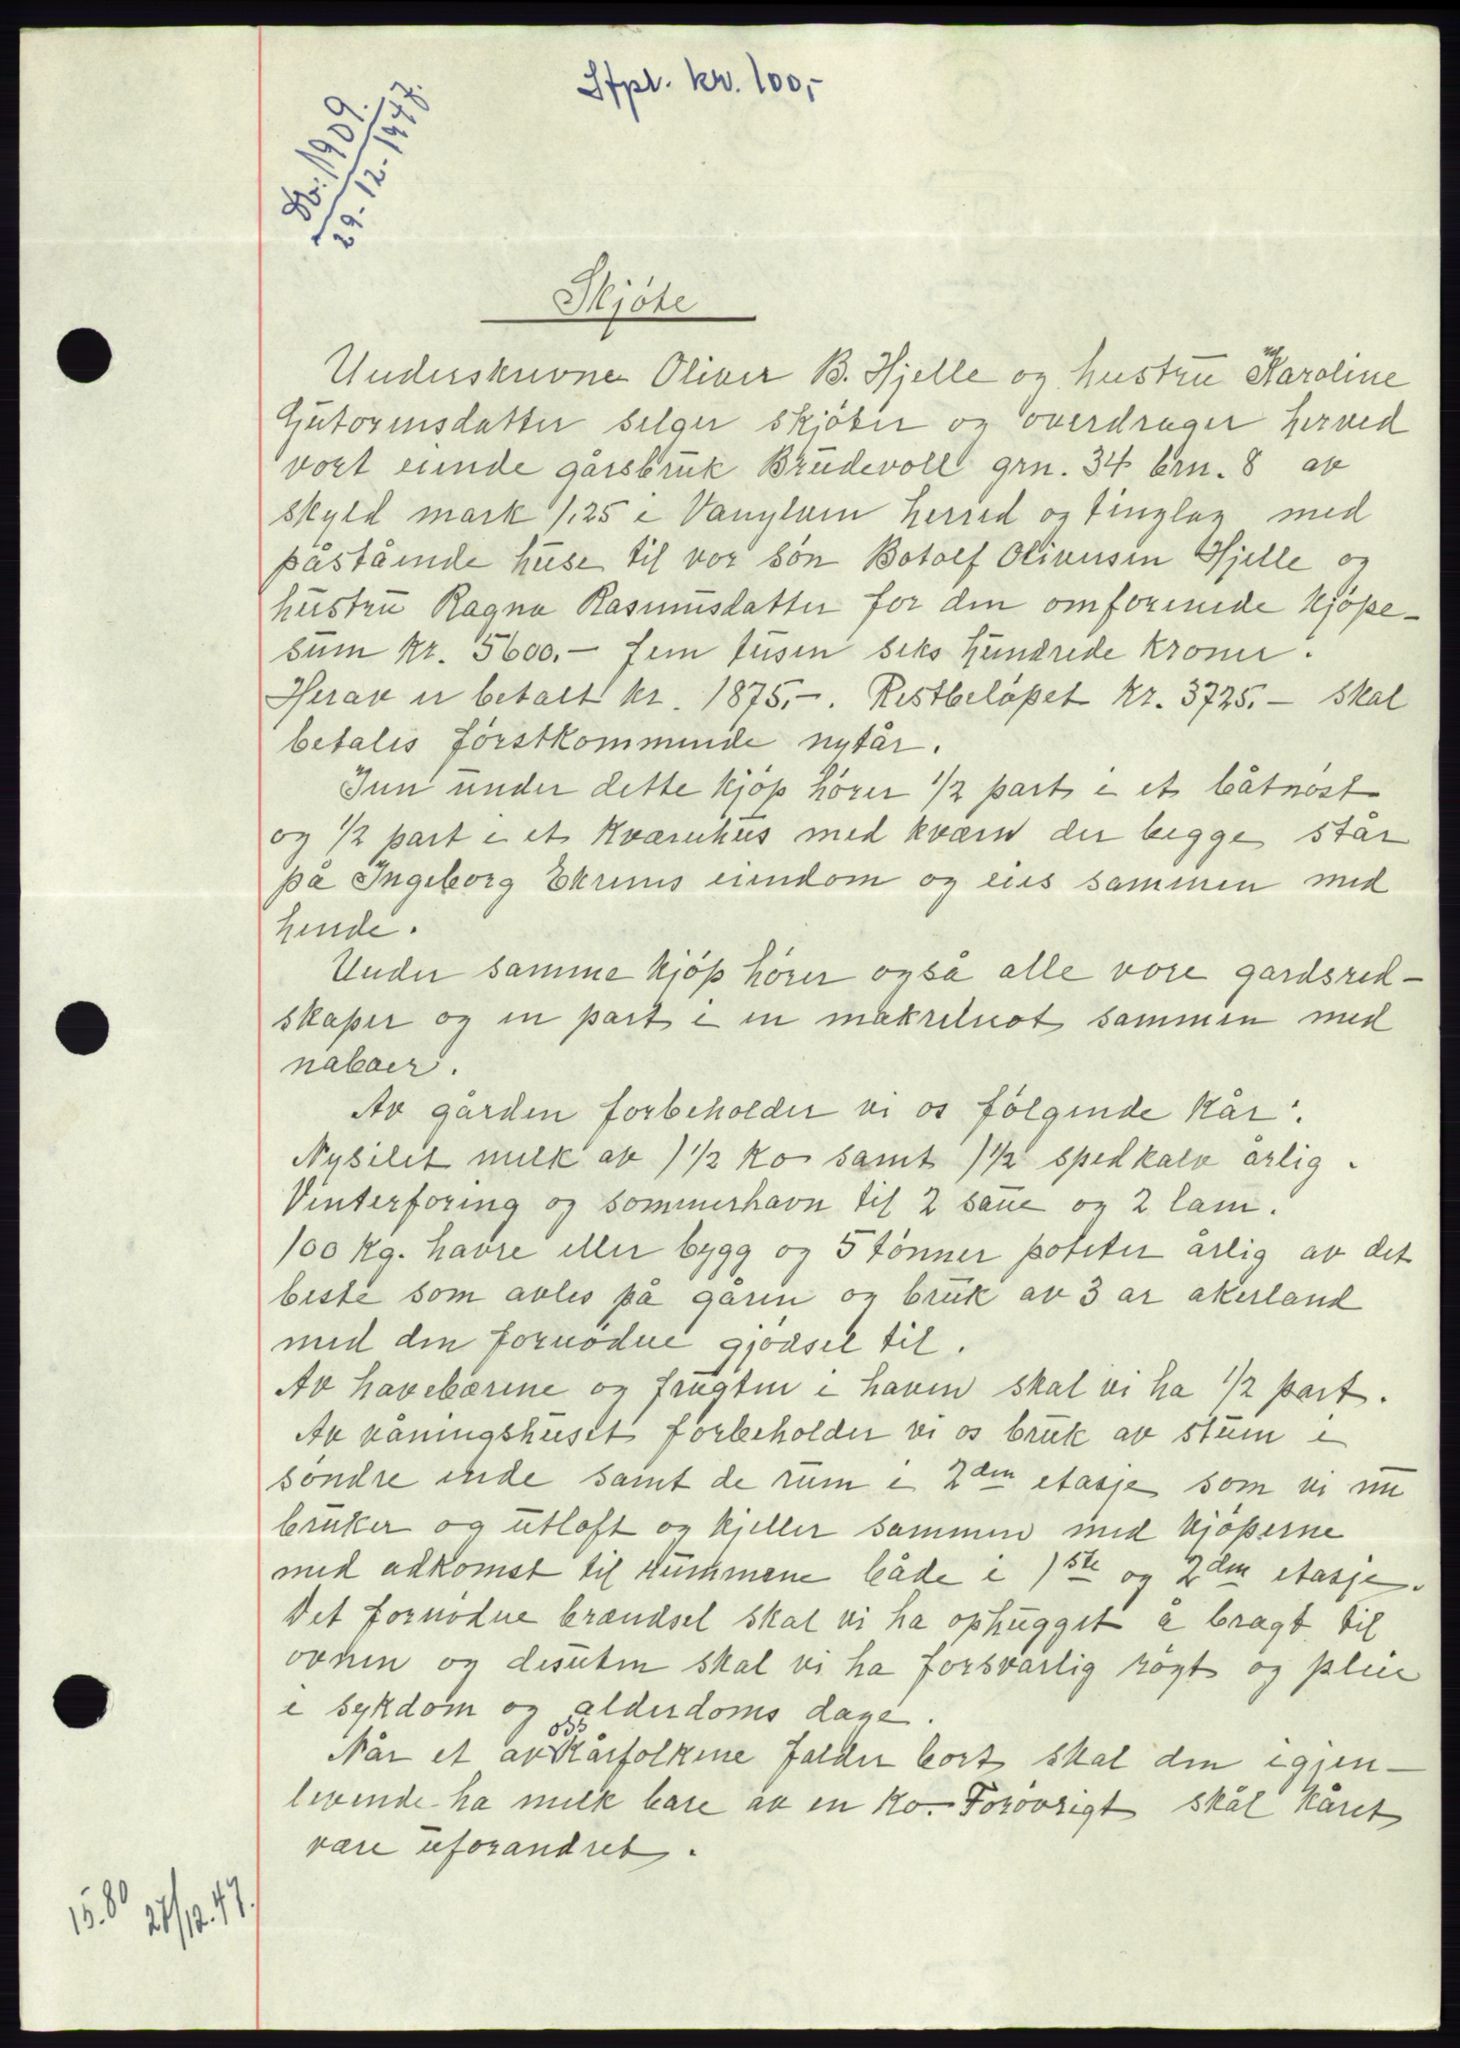 Stpl. kr. 100,-
Db: 1909.
29-12-1947.
Skjöte
Underskrevne Oliver B. Hjelle og hustru Karoline
Gutormsdatter selger skjöter og overdrager herved
vort eiende gårsbruk Brudevoll grn. 34 brn. 8 av
skyld mark 1,25 i Vanylven herred og tinglag med
påstående huse til vor sön Botolf Oliversen Hjelle og
hustru Ragna Rasmusdatter for den omforenede kjöpe-
sum kr. 5600.- fem tusen seks hundrede kroner.
Herav er betalt kr. 1875,-. Restbelöpet kr. 3725.- skal
betales förstkommende nytår.
Inn under dette kjöp hörer 1/2 part i et båtnöst
og 1/2 part i et kværnhus med kværn der begge står
på Ingeborg Ekrems eiendom og eies sammen med
hende.
Under samme kjöp hörer også alle vore gardsred-
skaper og en part i en makrelnot sammen med
naboer.
Av gården forbeholder vi os fölgende kår:
Nysilet melk av 1 1/2 ko samt 1 1/2 spedkalv årlig.
Vinterforing og sommerhavn til 2 saue og 2 lam.
100 kg. havre eller bygg og 5 tönner poteter årlig av det
beste som avles på gåren og bruk av 3 ar akerland
med den fornödne gjödsel til.
Av havebærene og frugten i haven skal vi ha 1/2 part.
Av våningshuset forbeholder vi os bruk av stuen i
söndre ende samt de rum i 2den etasje som vi nu
bruker og utloft og kjeller sammen med kjöperne
med adkomst til rummene både i 1ste og 2den etasje.
Det fornödne brændsel skal vi ha ophugget å bragt til
ovnen og desuten skal vi ha forsvarlig rögt og pleie
i sykdom og alderdoms dage.
Når et av oss kårfolkene falder bort skal den igjen-
levende ha melk bare av en ko. Forövrigt skal kåret
være uforandret.
15.80 27/12.47.